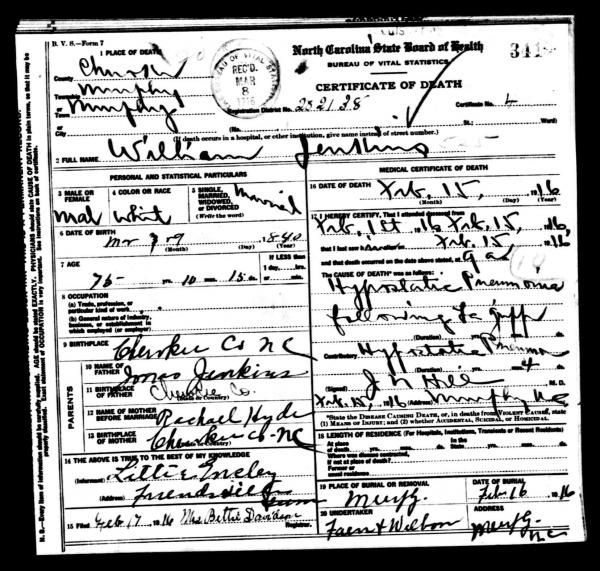 B. V. S.—Form 7
North Carolina State Board of Health
BUREAU OF VITAL STATISTICS
CERTIFICATE OF DEATH
BUREAU OF VITAL STATISTICS
REC'D.
MAR
8
1916
341
1 PLACE OF DEATH
County Cherokee
Township Murphy
or
Town Murphy
or
City
Registration District No. 2521 38
Certificate No. 4
(No. St.; Ward)
(If death occurs in a hospital, or other institution, give name instead of street number.)
2 FULL NAME William Jenkins
PERSONAL AND STATISTICAL PARTICULARS
3 MALE OR FEMALE Mal
4 COLOR OR RACE Whit
5 SINGLE, MARRIED, WIDOWED, OR DIVORCED (Write the word) Married
6 DATE OF BIRTH
(Month) (Day) 1840 (Year)
7 AGE
75 yrs. 10 mos. 15 ds.
If LESS than
1 day, hrs.
or min.
8 OCCUPATION
(a) Trade, profession, or
particular kind of work
(b) General nature of industry,
business, or establishment in
which employed (or employer)
9 BIRTHPLACE Cherokee Co NC
PARENTS
10 NAME OF FATHER Jonas Jenkins
11 BIRTHPLACE OF FATHER (State or Country) Cherokee Co.
12 NAME OF MOTHER BEFORE MARRIAGE Rachael Hyde
13 BIRTHPLACE OF MOTHER Cherokee Co-NC
14 THE ABOVE IS TRUE TO THE BEST OF MY KNOWLEDGE
(Informant)
(Address)
15 Filed Feb 17 1916 Mrs Bettie Davidson Registrar.
MEDICAL CERTIFICATE OF DEATH
16 DATE OF DEATH
Feb. 15, 1916
(Month) (Day) (Year)
17 I HEREBY CERTIFY, That I attended deceased from
Feb. 1st 1916 Feb. 15, 1916,
that I last saw alive on Feb. 15, 1916
and that death occurred on the date above stated, at 9 a
The CAUSE OF DEATH* was as follows:
Hypostatic Pneumonia
following La Gripp
(Duration) yrs. mos. ds.
Contributory Hypostatic Pneumon
(Duration) yrs. mos. 4 ds.
(Signed) J N Hill M. D.
Feb. 1916 (Address) Murphy NC
*State the DISEASE CAUSING DEATH, or, in deaths from VIOLENT CAUSES, state
(1) MEANS OF INJURY; and (2) whether ACCIDENTAL, SUICIDAL, or HOMICIDAL.
18 LENGTH OF RESIDENCE (For Hospitals, Institutions, Transients or Recent Residents)
At place
of death yrs. mos. ds.
In the
State yrs. mos. ds.
Where was disease contracted,
if not at place of death?
Former or
usual residence
19 PLACE OF BURIAL OR REMOVAL
DATE OF BURIAL
Feb 16 1916
20 UNDERTAKER
ADDRESS